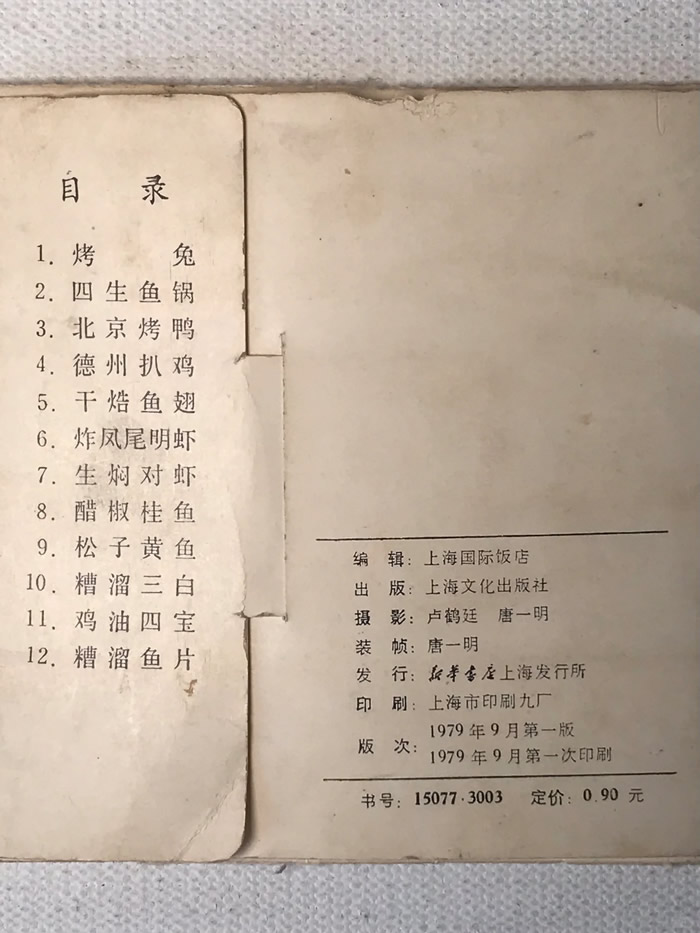 目 录
1. 烤 兔
2. 四生鱼锅
3. 北京烤鸭
4. 德州扒鸡
5. 干㸆鱼翅
6. 炸凤尾明虾
7. 生焖对虾
8. 醋椒桂鱼
9. 松子黄鱼
10. 糟溜三白
11. 鸡油四宝
12. 糟溜鱼片
编 辑：上海国际饭店
出 版：上海文化出版社
摄 影：卢鹤廷 唐一明
装 帧：唐一明
发 行：新华书店上海发行所
印 刷：上海市印刷九厂
版 次：1979年9月第一版
1979年9月第一次印刷
书号：15077·3003 定价：0.90 元